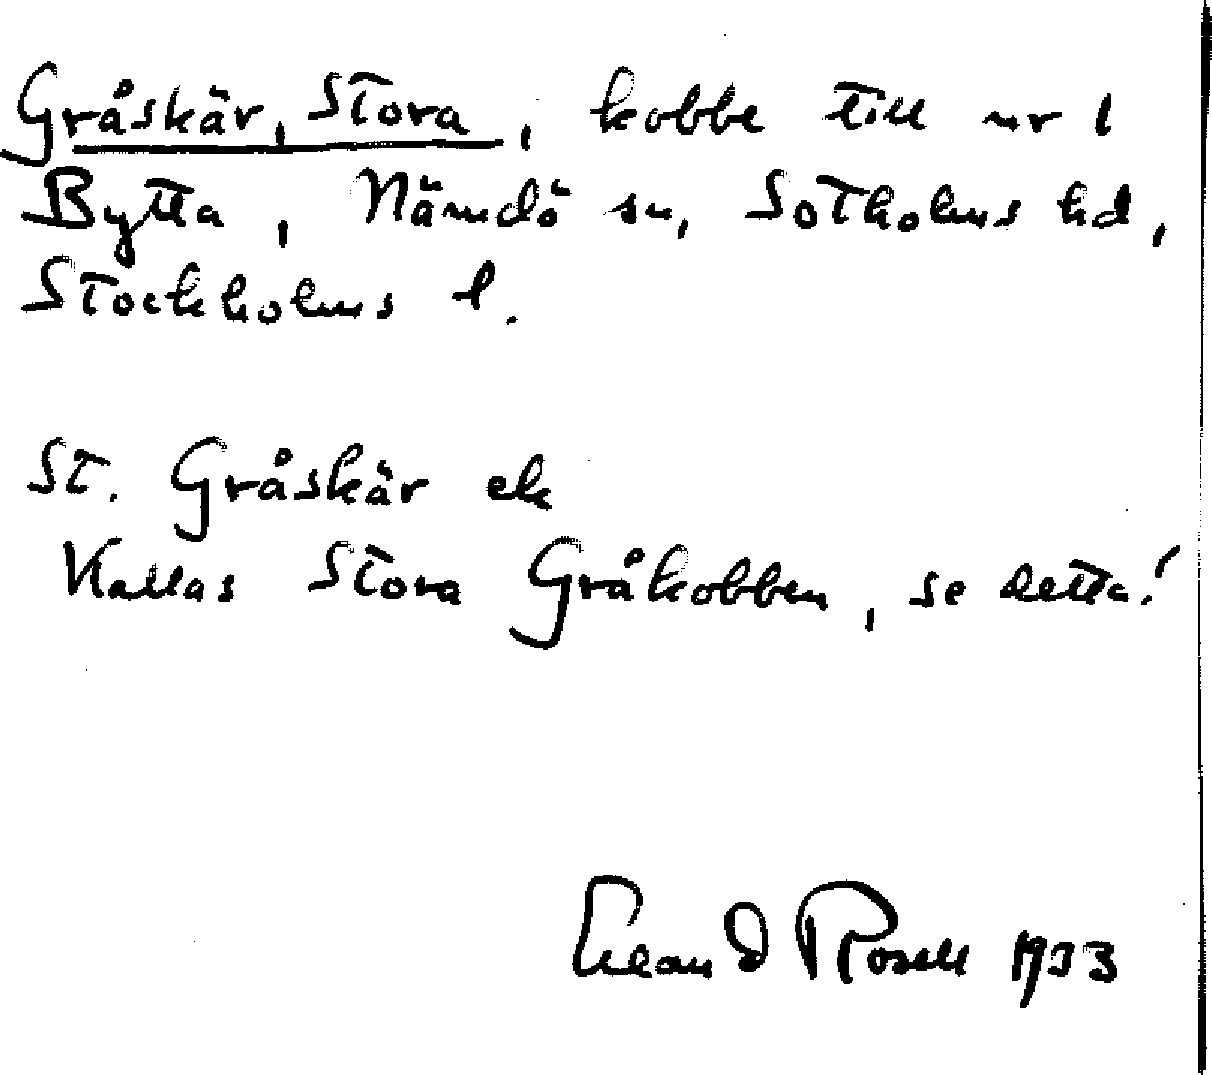 Gråskär, Stora, kobbe till nr 1
Bytta, Nämdö sn, Sotholms hd,
Stockholms l.
St. Gråskär ek
Kallas Stora Gråkobben, se detta!
Erland Rosell 1933